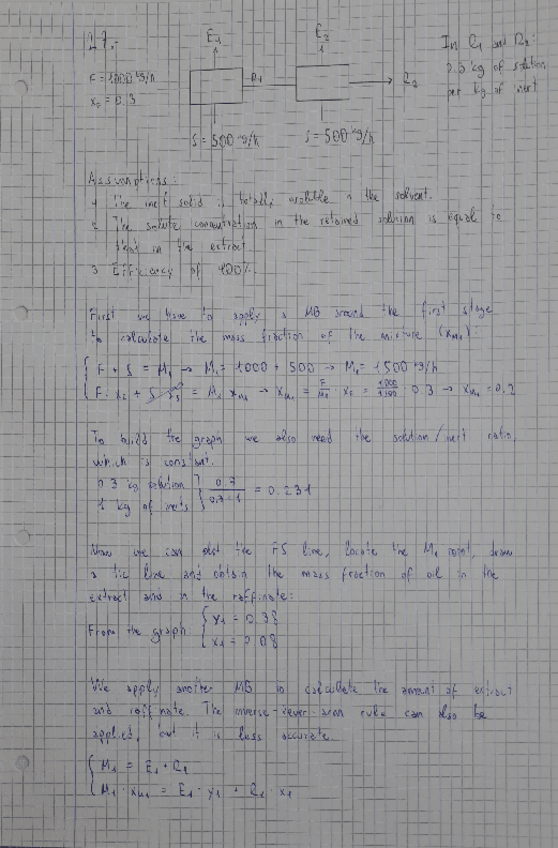 27.-
E1 E2
In R1 and R2:
F = 1000 kg/h R1 R2 0.3 kg of solution
xF = 0.3 per kg of inert
S = 500 kg/h S = 500 kg/h
Assumptions:
1 The inert solid is totally insoluble in the solvent.
2 The solute concentration in the retained solution is equal to
that in the extract.
3 Efficiency of 100%.
First we have to apply a MB around the first stage
to calculate the mass fraction of the mixture (xM1):
F + S = M1 → M1 = 1000 + 500 → M1 = 1500 kg/h
F · xF + S · yS = M1 · xM1 → xM1 = F/M1 · xF = 1000/1500 · 0.3 → xM1 = 0.2
To build the graph we also need the solution/inert ratio,
which is constant.
0.3 kg solution
1 kg of inerts 0.3/0.3+1 = 0.231
Now we can plot the FS line, locate the M1 point, draw
a tie line and obtain the mass fraction of oil in the
extract and in the raffinate:
From the graph: y1 = 0.38
x1 = 0.08
We apply another MB to calculate the amount of extract
and raffinate. The inverse-lever-arm rule can also be
applied, but it is less accurate.
M1 = E1 + R1
M1 · xM1 = E1 · y1 + R1 · x1